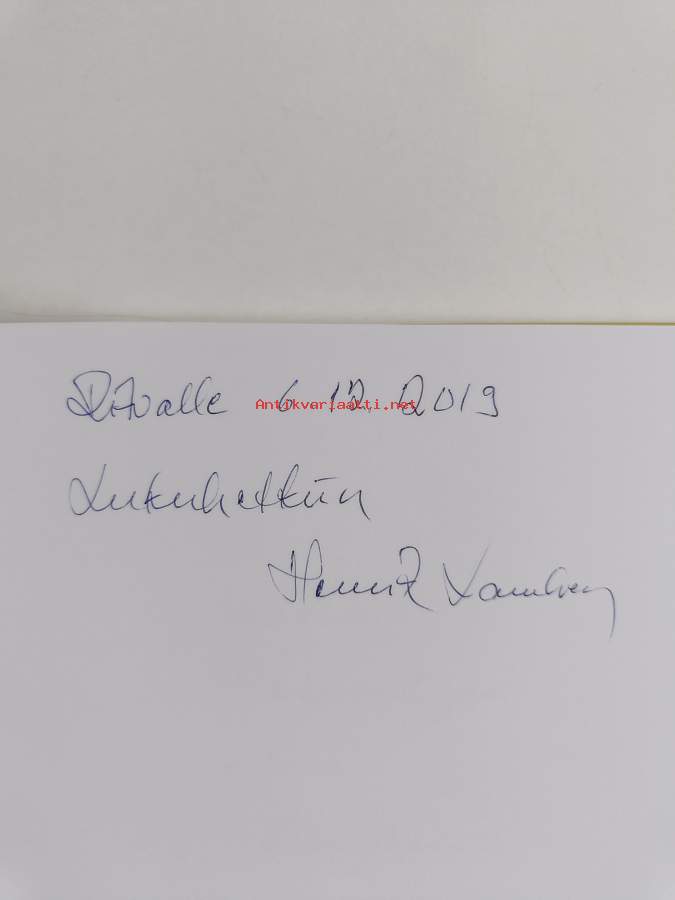 Ritvalle 6 12, 2019
Antikvariaatti.net
Lukuhetkiin
Henrik